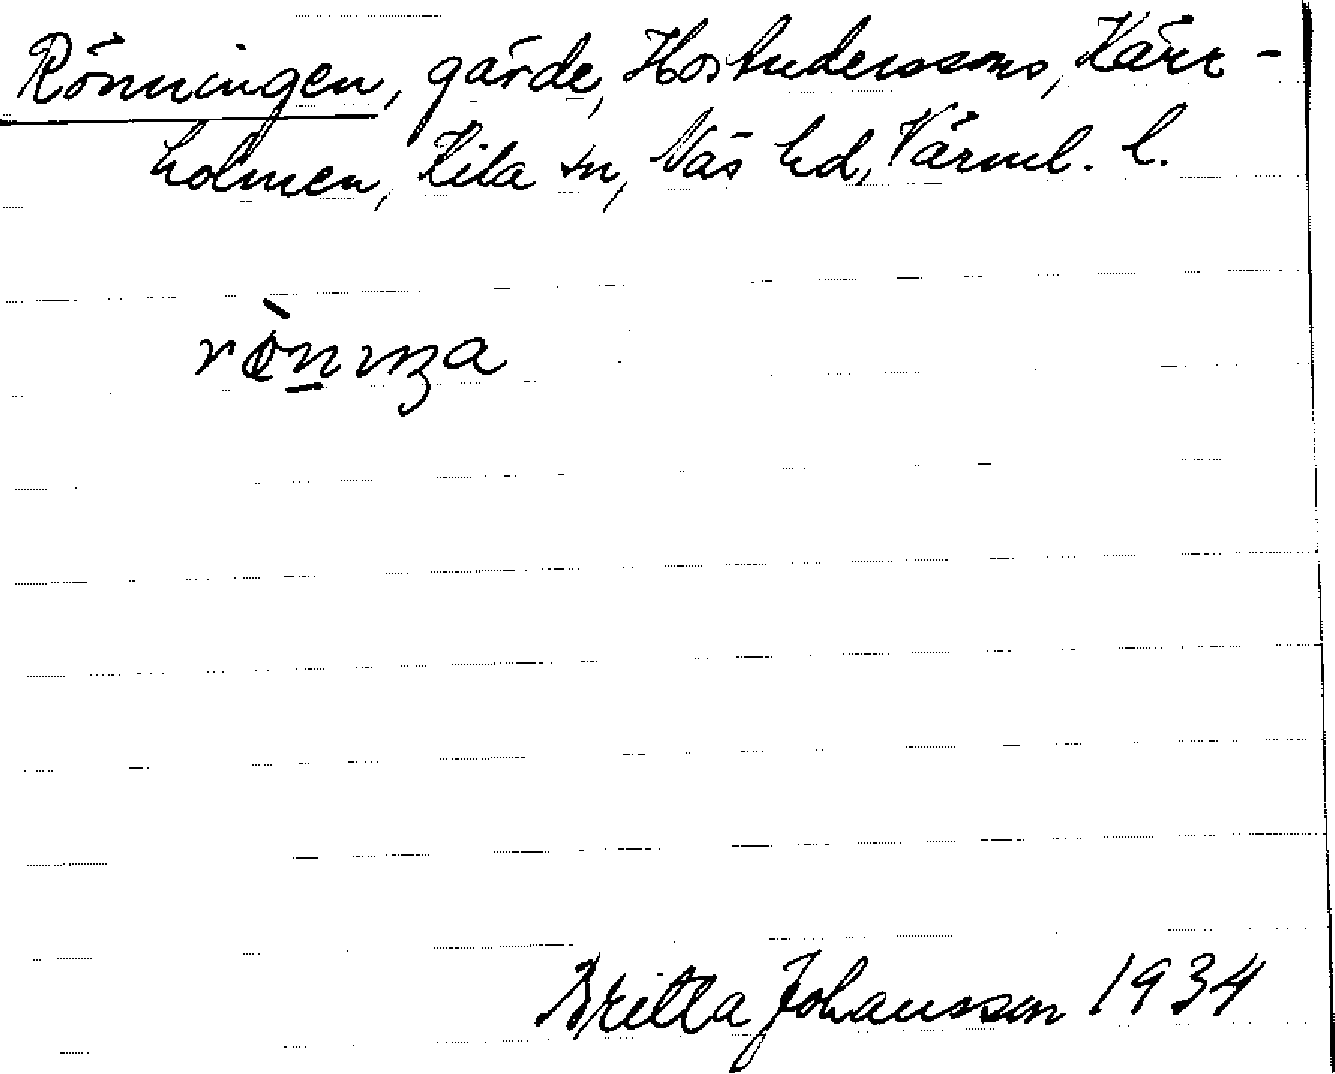 Rönningen, gärde, Hos Anderssons, Kärr-
holmen, Kila sn, Näs hd, Värml. l.
Britta Johansson 1934